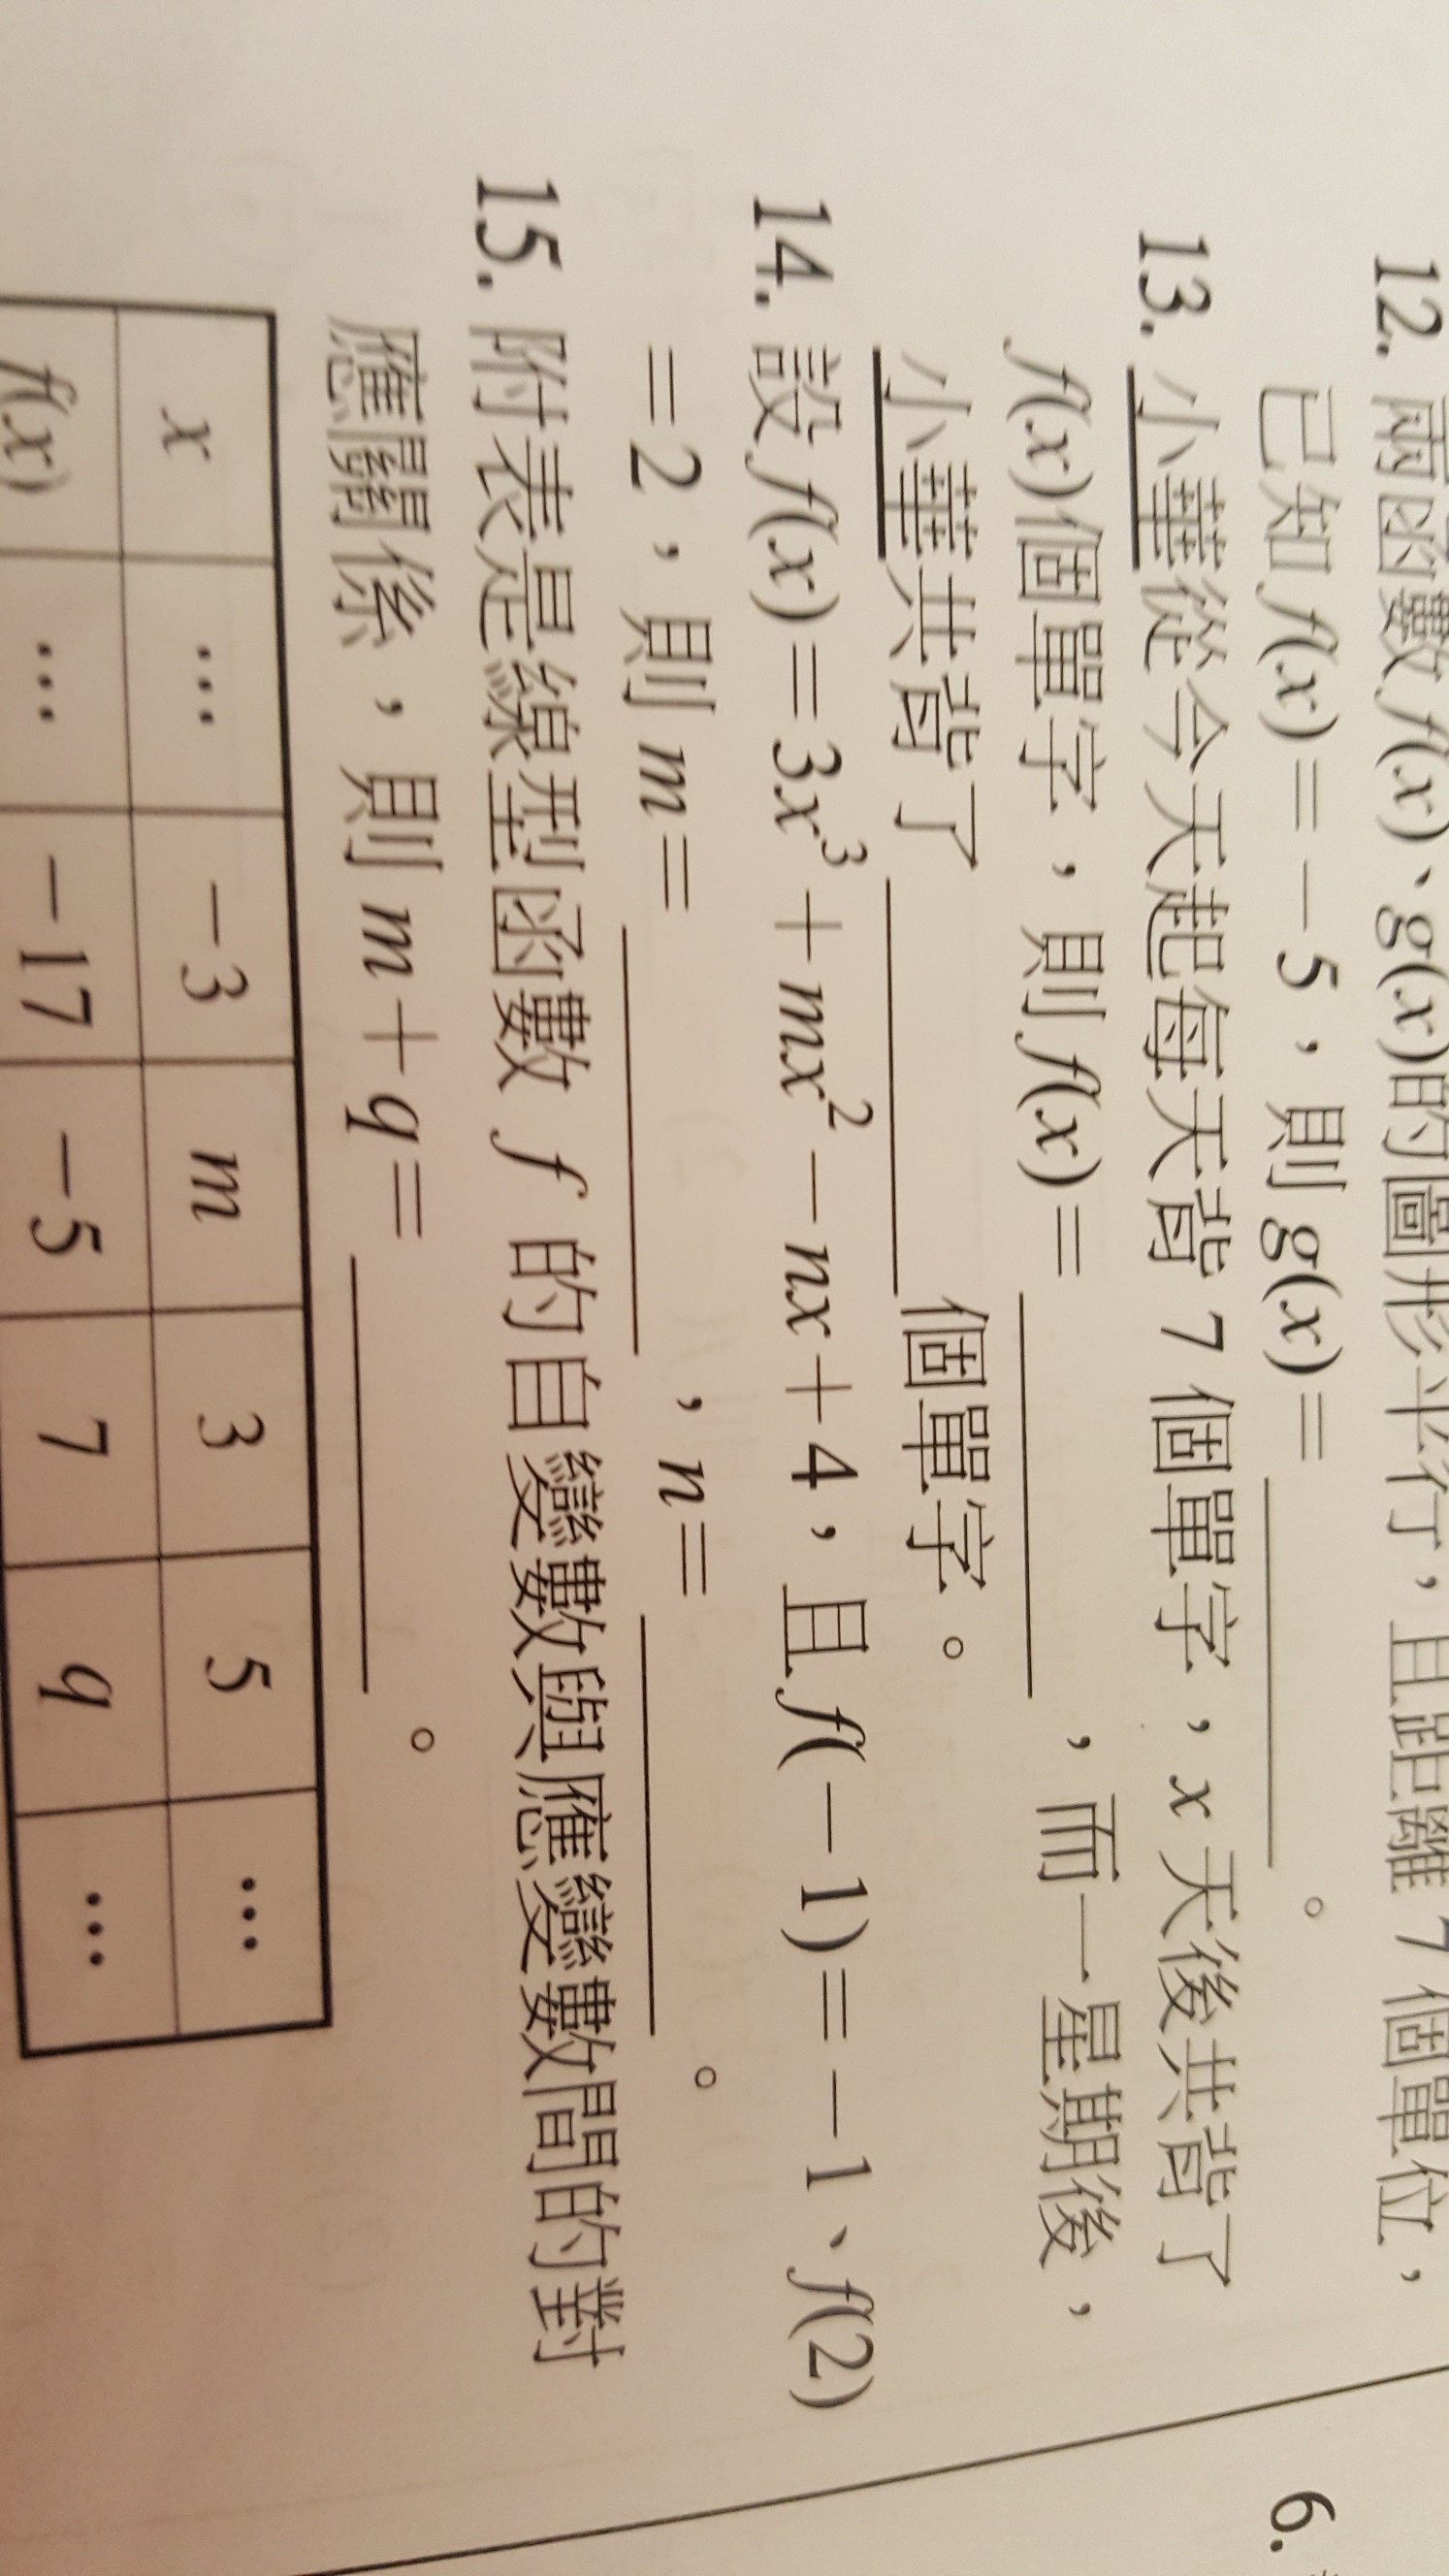 12. 兩函數 f(x)、g(x)的圖形平行，且距離 7 個單位，
已知 f(x)＝－5，則 g(x)＝＿＿＿＿。
13. 小華從今天起每天背 7 個單字，x 天後共背了
f(x)個單字，則 f(x)＝＿＿＿＿，而一星期後，
小華共背了＿＿＿＿個單字。
14. 設 f(x)＝3x³＋mx²－nx＋4，且 f(－1)＝－1、f(2)
＝2，則 m＝＿＿＿＿，n＝＿＿＿＿。
15. 附表是線型函數 f 的自變數與應變數間的對
應關係，則 m＋q＝＿＿＿＿。
x … －3 m 3 5 …
f(x) … －17 －5 7 q …
6.